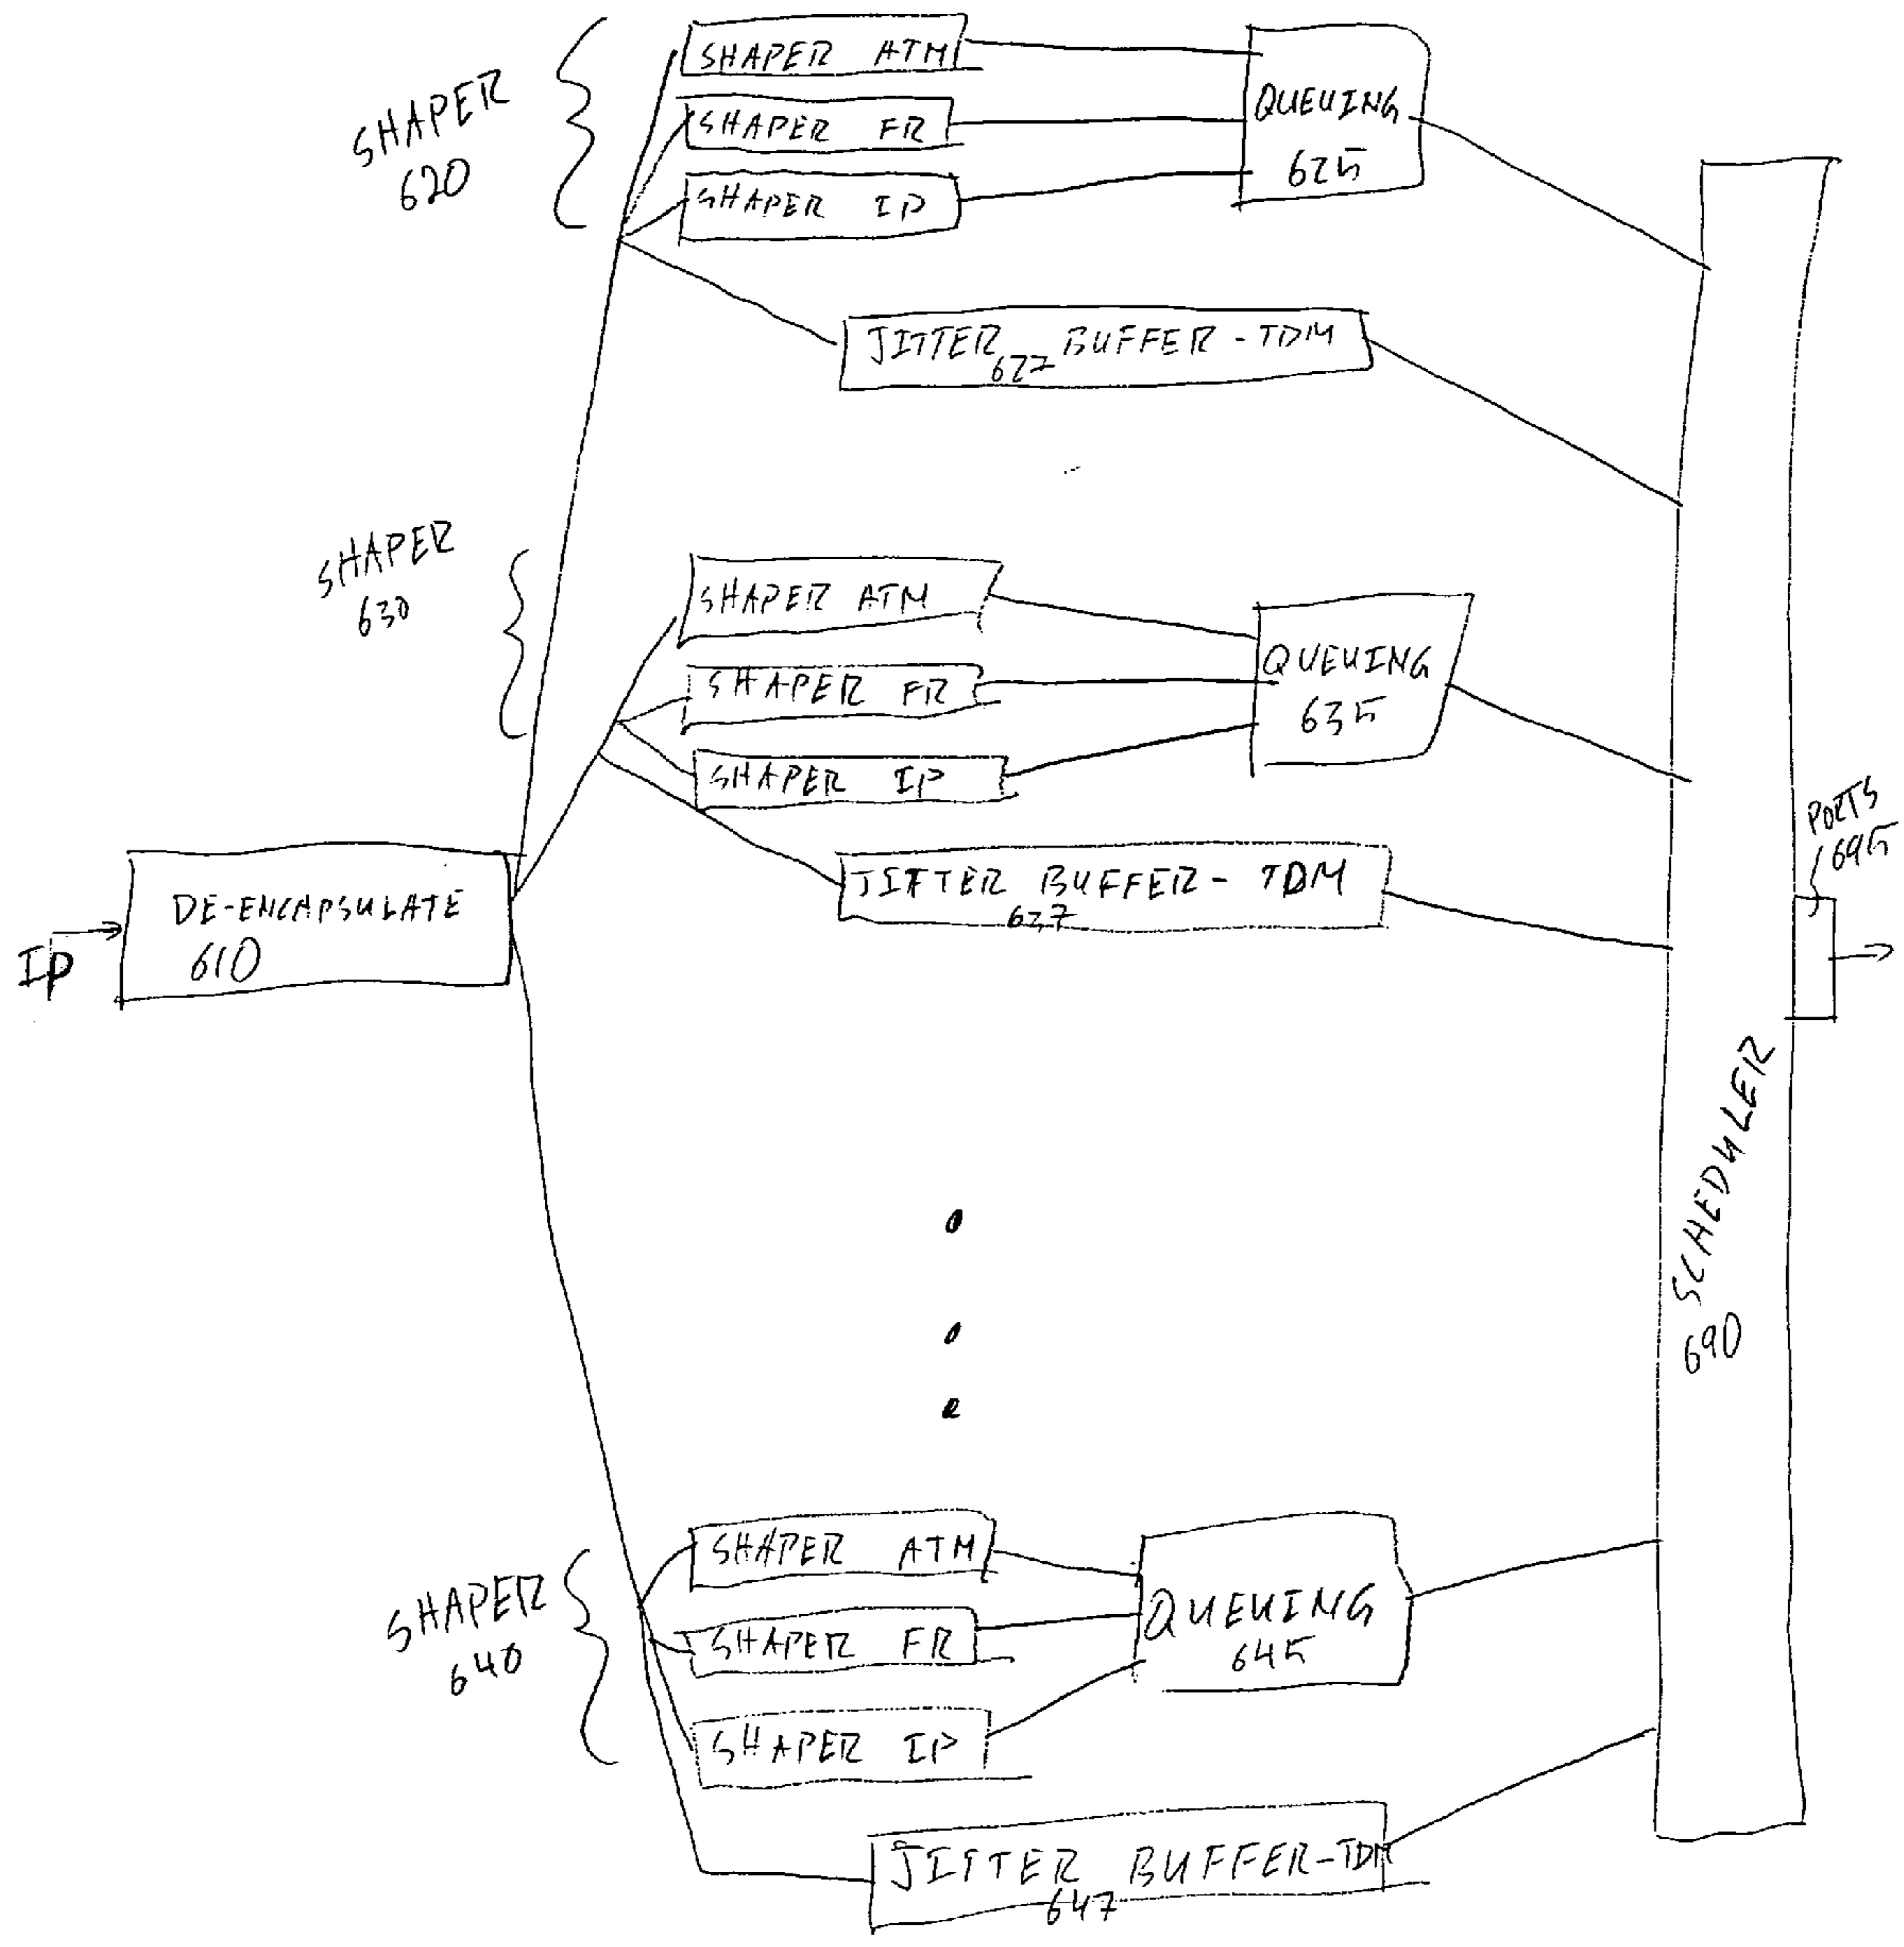 SHAPER
620
SHAPER ATM
SHAPER FR
SHAPER IP
QUEUING
625
JITTER BUFFER-TDM
627
SHAPER
630
SHAPER ATM
SHAPER FR
SHAPER IP
QUEUING
635
JITTER BUFFER-TDM
637
IP
DE-ENCAPSULATE
610
PORTS
695
SCHEDULER
690
SHAPER
640
SHAPER ATM
SHAPER FR
SHAPER IP
QUEUING
645
JITTER BUFFER-TDM
647